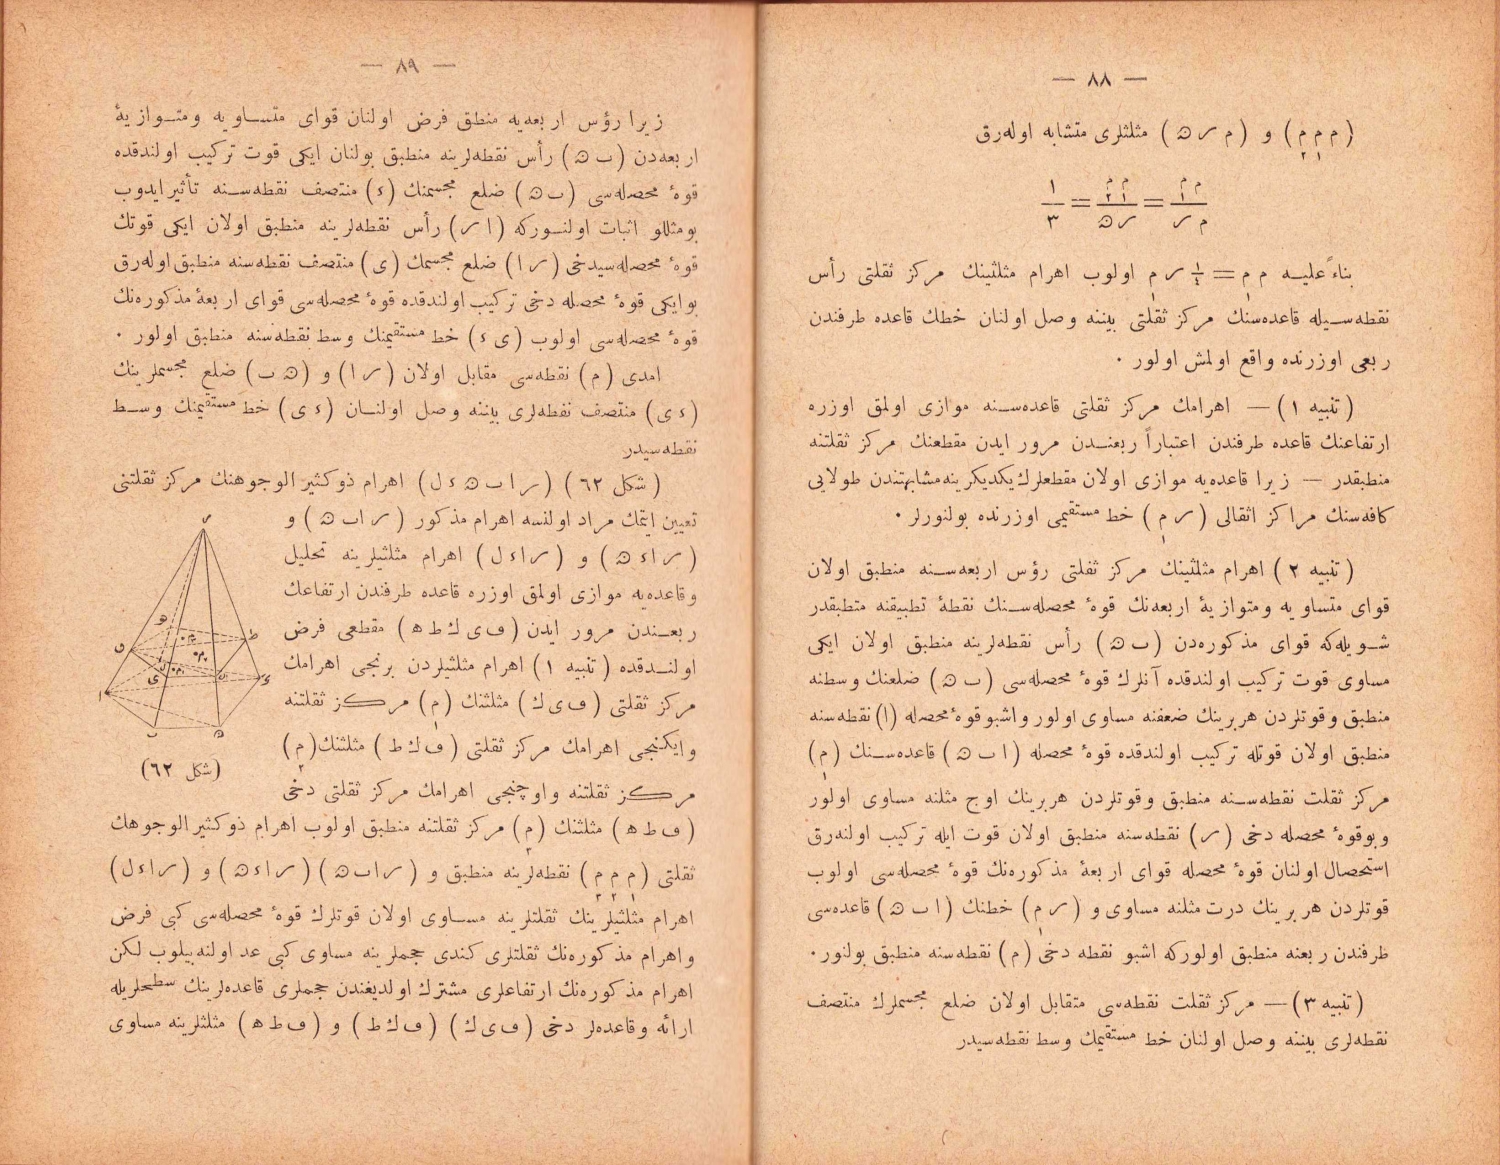 — ٨٨ —
(م م٢ م١) و (م ر ه) مثلثلری متشابه اوله‌رق
م م١ / م ر = م١ م٢ / ر ه = ١ / ٣
بناءً علیه م م١ = ١/٤ ر م١ اولوب اهرام مثلثینك مركز ثقلتی رأس
نقطه‌سیله قاعده‌سنك مركز ثقلتی بیننه وصل اولنان خطك قاعده طرفندن
ربعی اوزرنده واقع اولمش اولور ٠
(تنبیه ١) — اهرامك مركز ثقلتی قاعده‌سنه موازی اولمق اوزره
ارتفاعنك قاعده طرفندن اعتباراً ربعندن مرور ایدن مقطعنك مركز ثقلتنه
منطبقدر — زیرا قاعده‌یه موازی اولان مقطعلرك یكدیكرینه مشابهتندن طولایی
كافه‌سنك مراكز اثقالی (ر م١) خط مستقیمی اوزرنده بولنورلر ٠
(تنبیه ٢) اهرام مثلثینك مركز ثقلتی رؤس اربعه‌سنه منطبق اولان
قوای متساویه ومتوازیهٔ اربعه‌نك قوهٔ محصله‌سنك نقطهٔ تطبیقنه منطبقدر
شویله‌كه قوای مذكوره‌دن (ب ه) رأس نقطه‌لرینه منطبق اولان ایكی
مساوی قوت تركیب اولندقده آنلرك قوهٔ محصله‌سی (ب ه) ضلعنك وسطنه
منطبق وقوتلردن هربرینك ضعفنه مساوی اولور واشبو قوهٔ محصله (ا) نقطه‌سنه
منطبق اولان قوتله تركیب اولندقده قوهٔ محصله (ا ب ه) قاعده‌سنك (م١)
مركز ثقلت نقطه‌سنه منطبق وقوتلردن هربرینك اوچ مثلنه مساوی اولور
وبوقوهٔ محصله دخی (ر) نقطه‌سنه منطبق اولان قوت ایله تركیب اولنه‌رق
استحصال اولنان قوهٔ محصله قوای اربعهٔ مذكوره‌نك قوهٔ محصله‌سی اولوب
قوتلردن هربرینك درت مثلنه مساوی و (ر م١) خطنك (ا ب ه) قاعده‌سی
طرفندن ربعنه منطبق اولوركه اشبو نقطه دخی (م) نقطه‌سنه منطبق بولنور ٠
(تنبیه ٣) — مركز ثقلت نقطه‌سی متقابل اولان ضلع مجسملرك منتصف
نقطه‌لری بیننه وصل اولنان خط مستقیمك وسط نقطه‌سیدر
— ٨٩ —
زیرا رؤس اربعه‌یه منطق فرض اولنان قوای متساویه ومتوازیهٔ
اربعه‌دن (ب ه) رأس نقطه‌لرینه منطبق بولنان ایكی قوت تركیب اولندقده
قوهٔ محصله‌سی (ب ه) ضلع مجسمنك (ء) منتصف نقطه‌سنه تأثیر ایدوب
بومثللو اثبات اولنوركه (ا ر) رأس نقطه‌لرینه منطبق اولان ایكی قوتك
قوهٔ محصله‌سیدخی (ر ا) ضلع مجسمك (ی) منتصف نقطه‌سنه منطبق اوله‌رق
بوایكی قوهٔ محصله دخی تركیب اولندقده قوهٔ محصله‌سی قوای اربعهٔ مذكوره‌نك
قوهٔ محصله‌سی اولوب (ی ء) خط مستقیمنك وسط نقطه‌سنه منطبق اولور ٠
امدی (م) نقطه‌سی مقابل اولان (ر ا) و (ه ب) ضلع مجسملرینك
(ء ی) منتصف نقطه‌لری بیننه وصل اولنان (ء ی) خط مستقیمنك وسط
نقطه‌سیدر
(شكل ٦٢) (ر ا ب ه ء ل) اهرام ذوكثیر الوجوهنك مركز ثقلتنی
تعیین ایتمك مراد اولنسه اهرام مذكور (ر ا ب ه) و
(ر ا ء ه) و (ر ا ء ل) اهرام مثلثیلرینه تحلیل
وقاعده‌یه موازی اولمق اوزره قاعده طرفندن ارتفاعك
ربعندن مرور ایدن (ف ی ك ط ه) مقطعی فرض
اولندقده (تنبیه ١) اهرام مثلثیلردن برنجی اهرامك
مركز ثقلتی (ف ی ك) مثلثنك (م١) مركز ثقلتنه
وایكنجی اهرامك مركز ثقلتی (ف ك ط) مثلثنك (م٢)
مركز ثقلتنه واوچنجی اهرامك مركز ثقلتی دخی
(شكل ٦٢)
(ف ط ه) مثلثنك (م٣) مركز ثقلتنه منطبق اولوب اهرام ذوكثیر الوجوهك
ثقلتی (م١ م٢ م٣) نقطه‌لرینه منطبق و (ر ا ب ه) (ر ا ء ه) و (ر ا ء ل)
اهرام مثلثیلرینك ثقلتلرینه مساوی اولان قوتلرك قوهٔ محصله‌سی كبی فرض
واهرام مذكوره‌نك ثقلتلری كندی حجملرینه مساوی كبی عد اولنه‌بیلوب لكن
اهرام مذكوره‌نك ارتفاعلری مشترك اولدیغندن حجملری قاعده‌لرینك سطحلریله
ارائه وقاعده‌لر دخی (ف ی ك) (ف ك ط) و (ف ط ه) مثلثلرینه مساوی